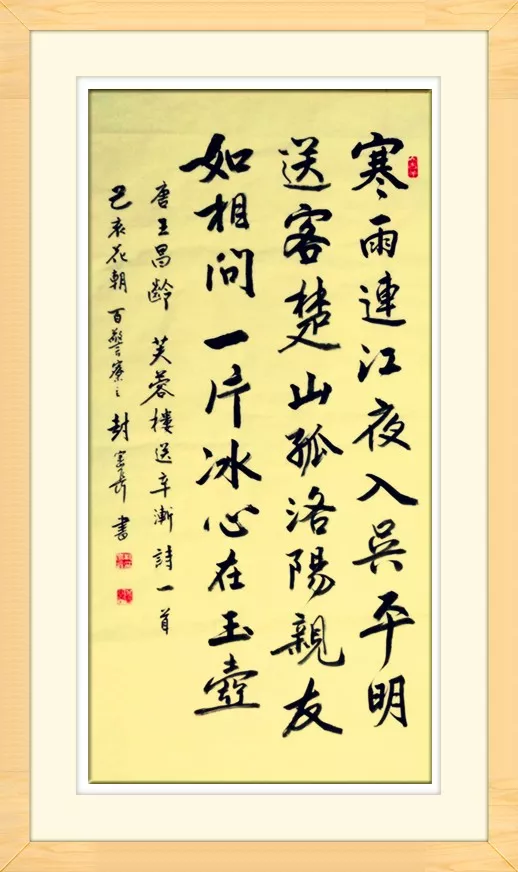 寒雨連江夜入吳平明
送客楚山孤洛陽親友
如相問一片冰心在玉壺
唐王昌齡 芙蓉樓送辛漸 詩一首
己亥花朝 百警寮之 封 書